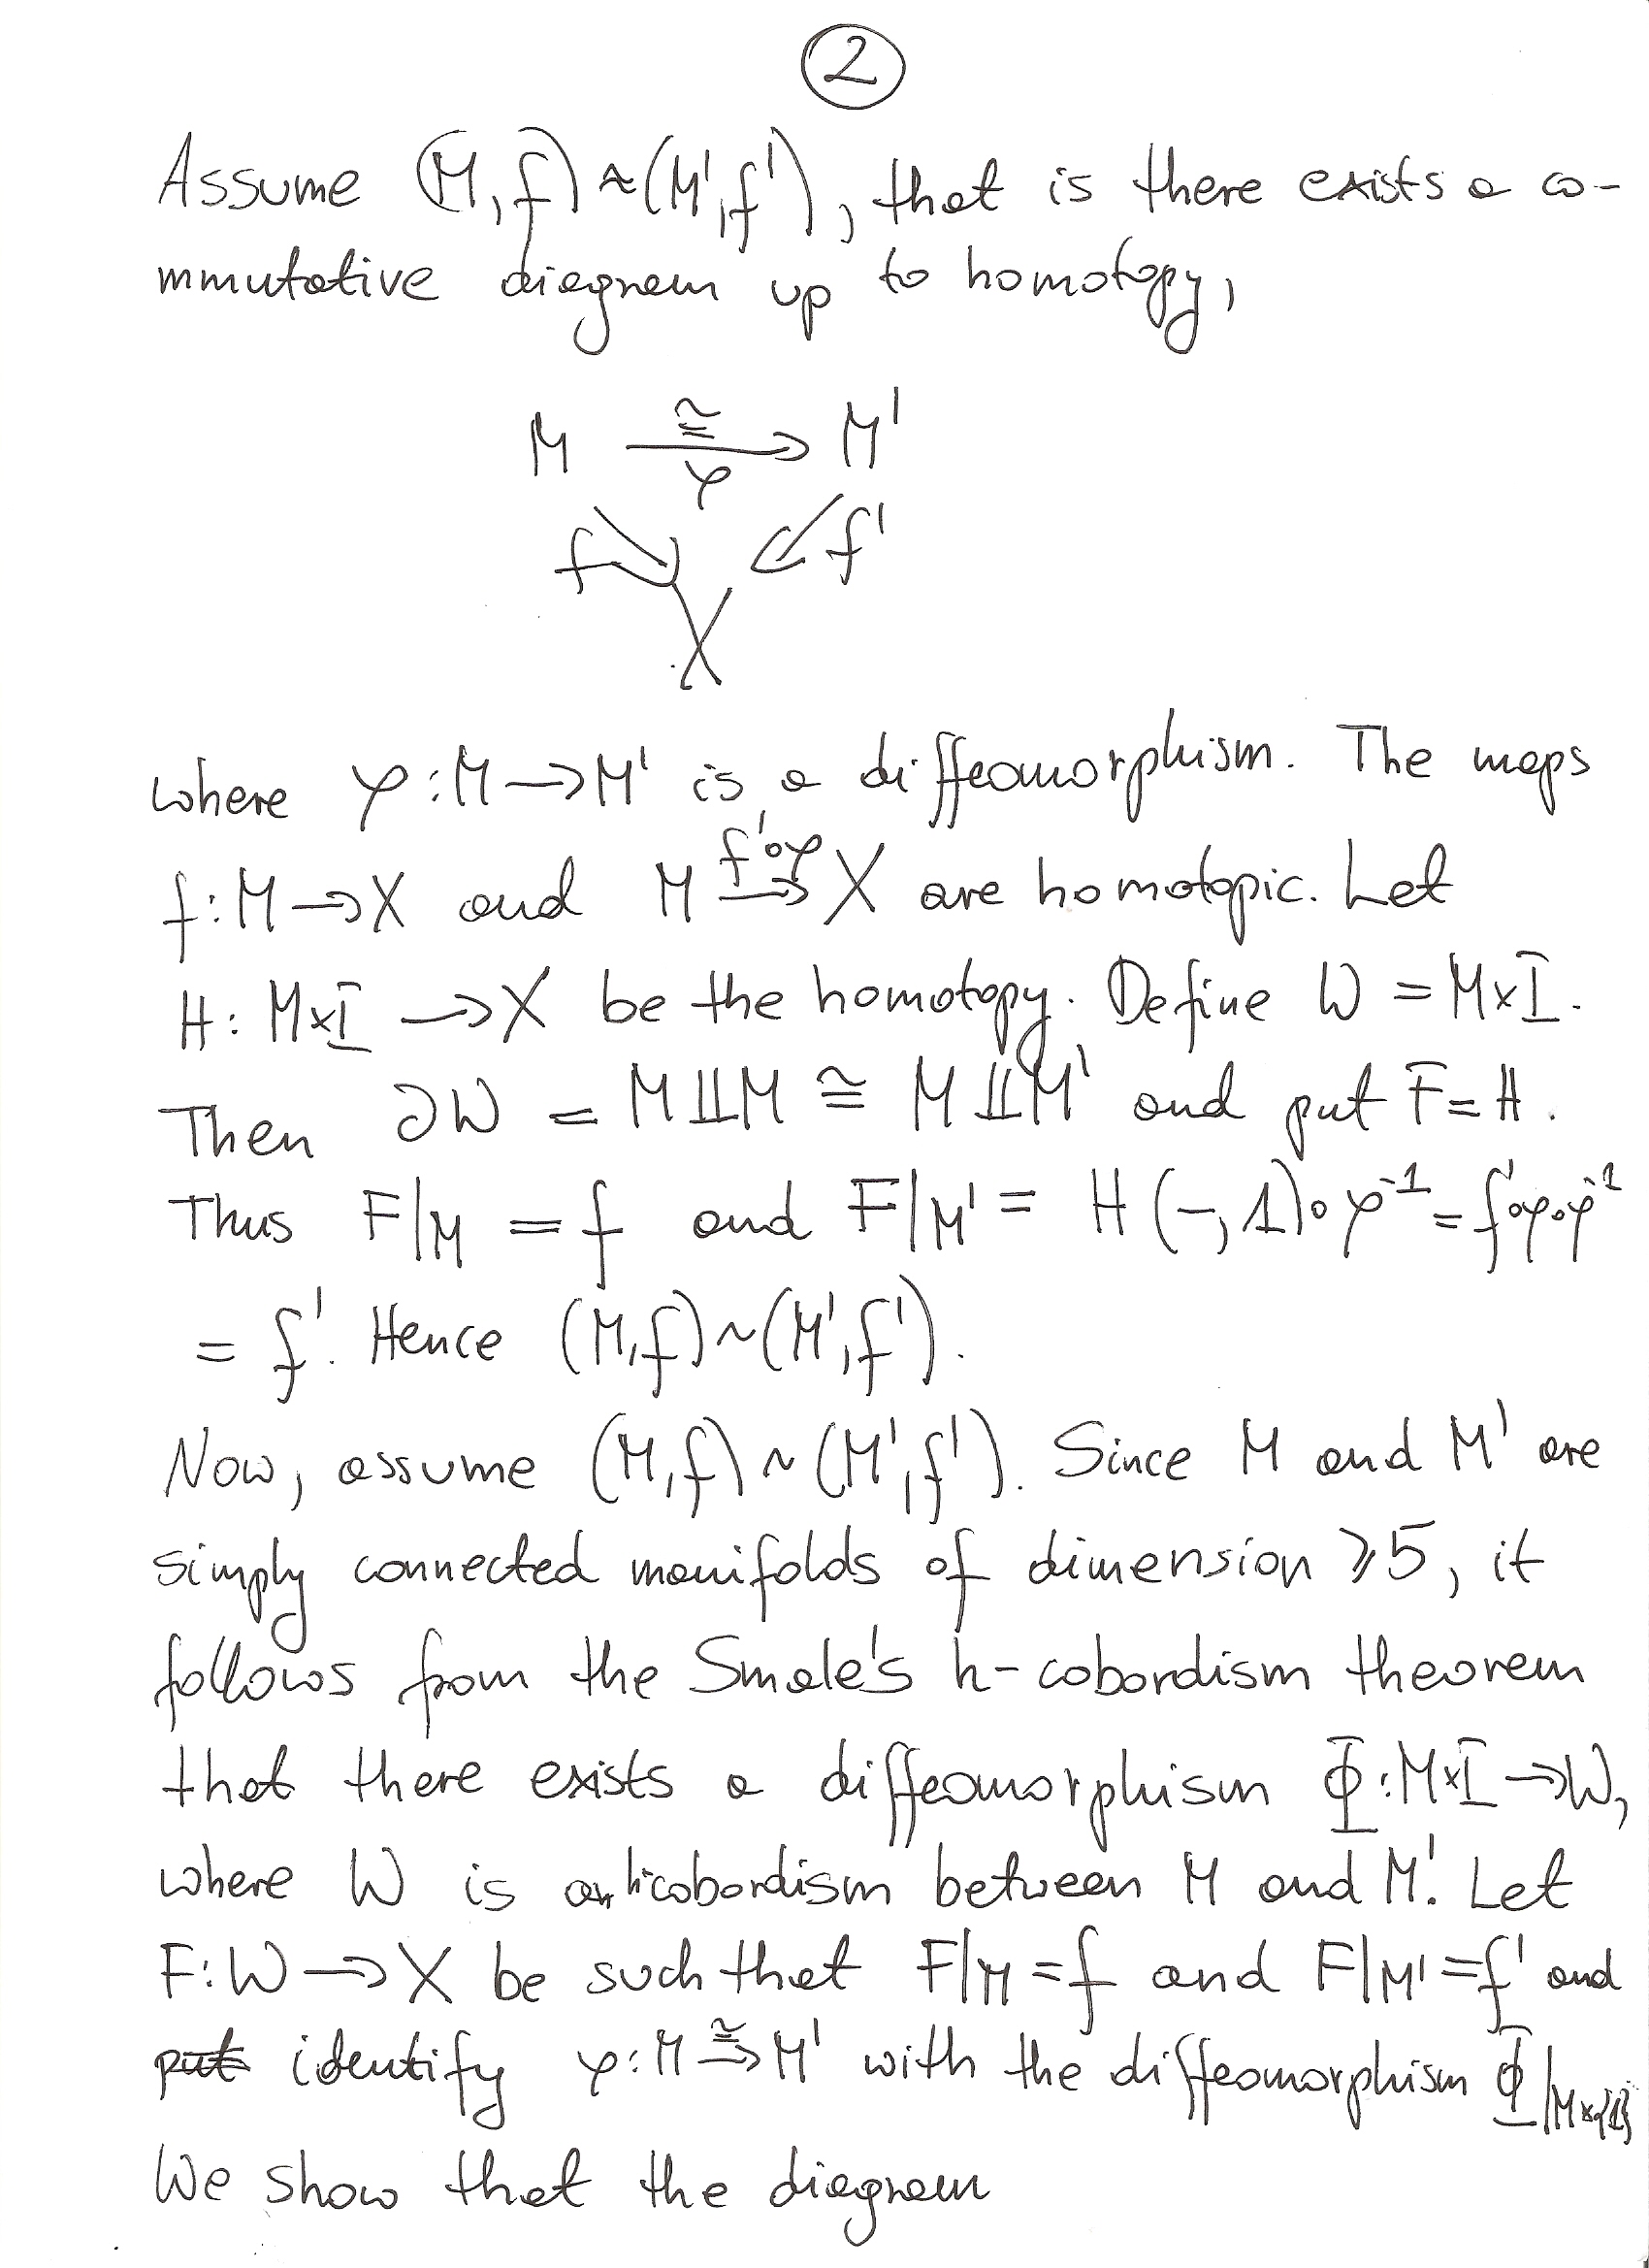 2
Assume (M,f)≈(M',f'), that is there exists a co-
mmutative diagram up to homotopy,
M ≅→ M'
φ
f f'
X
where φ:M→M' is a diffeomorphism. The maps
f:M→X and M f'∘φ→ X are homotopic. Let
H: M×I →X be the homotopy. Define W = M×I.
Then ∂W = M⨿M ≅ M⨿M' and put F=H.
Thus F|M = f and F|M' = H(-,1)∘φ⁻¹ = f'∘φ∘φ⁻¹
= f'. Hence (M,f)~(M',f').
Now, assume (M,f)~(M',f'). Since M and M' are
simply connected manifolds of dimension ⩾5, it
follows from the Smale's h-cobordism theorem
that there exists a diffeomorphism Φ:M×I→W,
where W is an h-cobordism between M and M'. Let
F:W→X be such that F|M=f and F|M'=f' and
put identify φ:M ≅→ M' with the diffeomorphism Φ|M×{1}
We show that the diagram